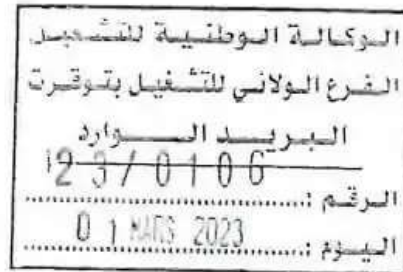 الوكالة الوطنية للتشغيل
الفرع الولائي للتشغيل بتوقرت
البريد الوارد
23/0106
الرقم :
اليوم : 01 MARS 2023